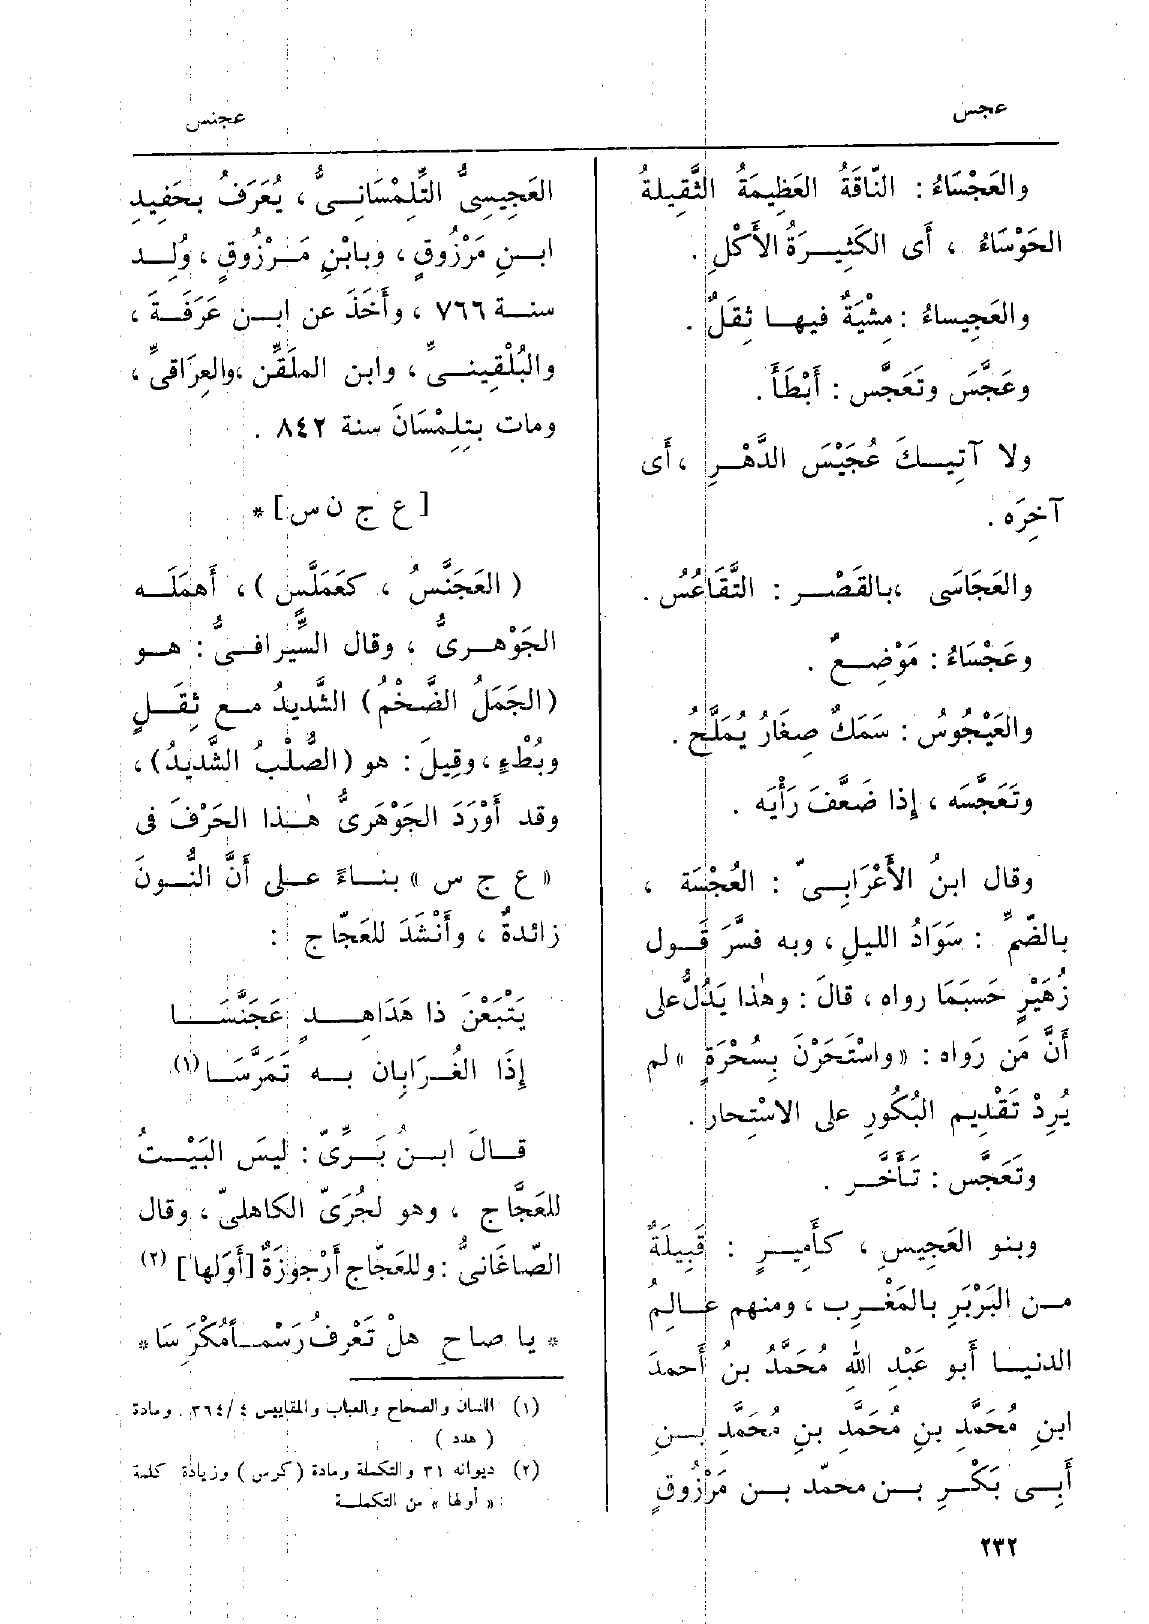 عجس
عجنس
والعَجْسَاءُ : النّاقَةُ العَظِيمَةُ الثَّقِيلةُ
الحَوْسَاءُ ، أَى الكَثِيرَةُ الأَكْلِ .
والعَجِيساءُ : مِشْيَةٌ فيها ثِقَلٌ .
وعَجَّسَ وتَعَجَّس : أَبْطَأَ .
ولا آتِيكَ عُجَيْسَ الدَّهْرِ ، أَى
آخِرَه .
والعَجَاسَى ، بالقَصْر : التَّقَاعُسُ .
وعَجْسَاءُ : مَوْضِعٌ .
والعَيْجُوسُ : سَمَكٌ صِغَارٌ يُمَلَّحُ .
وتَعَجَّسَه ، إِذا ضَعَّفَ رَأْيَه .
وقال ابنُ الأَعْرَابِىّ : العُجْسَة ،
بالضَّمِّ : سَوَادُ الليلِ ، وبه فسَّرَ قَول
زُهَيْرٍ حَسَبَمَا رواه ، قالَ : وهٰذا يَدُلُّ على
أَنَّ مَن رَواه : «واسْتَحَرْنَ بِسُحْرَةٍ» لم
يُرِدْ تَقْدِيم البُكُورِ على الاسْتِحارِ .
وتَعَجَّس : تَأَخَّر .
وبنو العَجِيسِ ، كأَمِيرٍ : قَبِيلَةٌ
من البَرْبَرِ بالمَغْرِب ، ومنهم عالِمُ
الدنيا أَبو عَبْد الله مُحَمَّدُ بنُ أَحمدَ
ابنِ مُحَمَّدِ بنِ مُحَمَّدِ بنِ مُحَمَّدِ بنِ
أَبِى بَكْرِ بن محمّد بن مَرْزُوقٍ
العَجِيسِىُّ التِّلِمْسَانِىُّ ، يُعَرَفُ بحَفِيدِ
ابنِ مَرْزُوقٍ ، وبابْنِ مَرْزُوقٍ ، وُلِد
سنة ٧٦٦ ، وأَخَذَ عن ابن عَرَفَةَ ،
والبُلْقِينىِّ ، وابن الملَقِّن ،والعِرَاقىِّ ،
ومات بتِلِمْسَانَ سنة ٨٤٢ .
[ ع ج ن س ] *
( العَجَنَّسُ ، كعَمَلَّسٍ ) ، أَهمَلَه
الجَوْهرىُّ ، وقال السِّيرافىُّ : هو
(الجَمَلُ الضَّخْمُ) الشَّدِيدُ مع ثِقَلٍ
وبُطْءٍ ، وقِيلَ : هو (الصُّلْبُ الشَّدِيدُ) ،
وقد أَوْرَدَ الجَوْهَرىُّ هٰذا الحَرْفَ فى
« ع ج س » بناءً على أَنَّ النُّونَ
زائدةٌ ، وأَنْشَدَ للعَجّاج :
يَتْبَعْنَ ذا هَدَاهِدٍ عَجَنَّسَا
إِذَا الغُرَابان به تَمَرَّسَا (١)
قالَ ابنُ بَرِّىّ : ليسَ البَيْتُ
للعَجَّاج ، وهو لجُرَىّ الكاهلىّ ، وقال
الصّاغَانىُّ : وللعَجّاج أُرْجوزَةٌ [أَوّلها] (٢)
* يا صاحِ هلْ تَعْرِفُ رَسْماً مُكْرَسَا *
(١) اللسان والصحاح والعباب والمقاييس ٣٦٤/٤ . ومادة
( هدد )
(٢) ديوانه ٣١ والتكملة ومادة (كرس) وزيادة كلمة
« أولها » من التكملة
٢٣٢